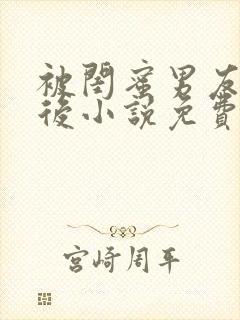 被閏蜜男友
後小說免費
宮崎周平